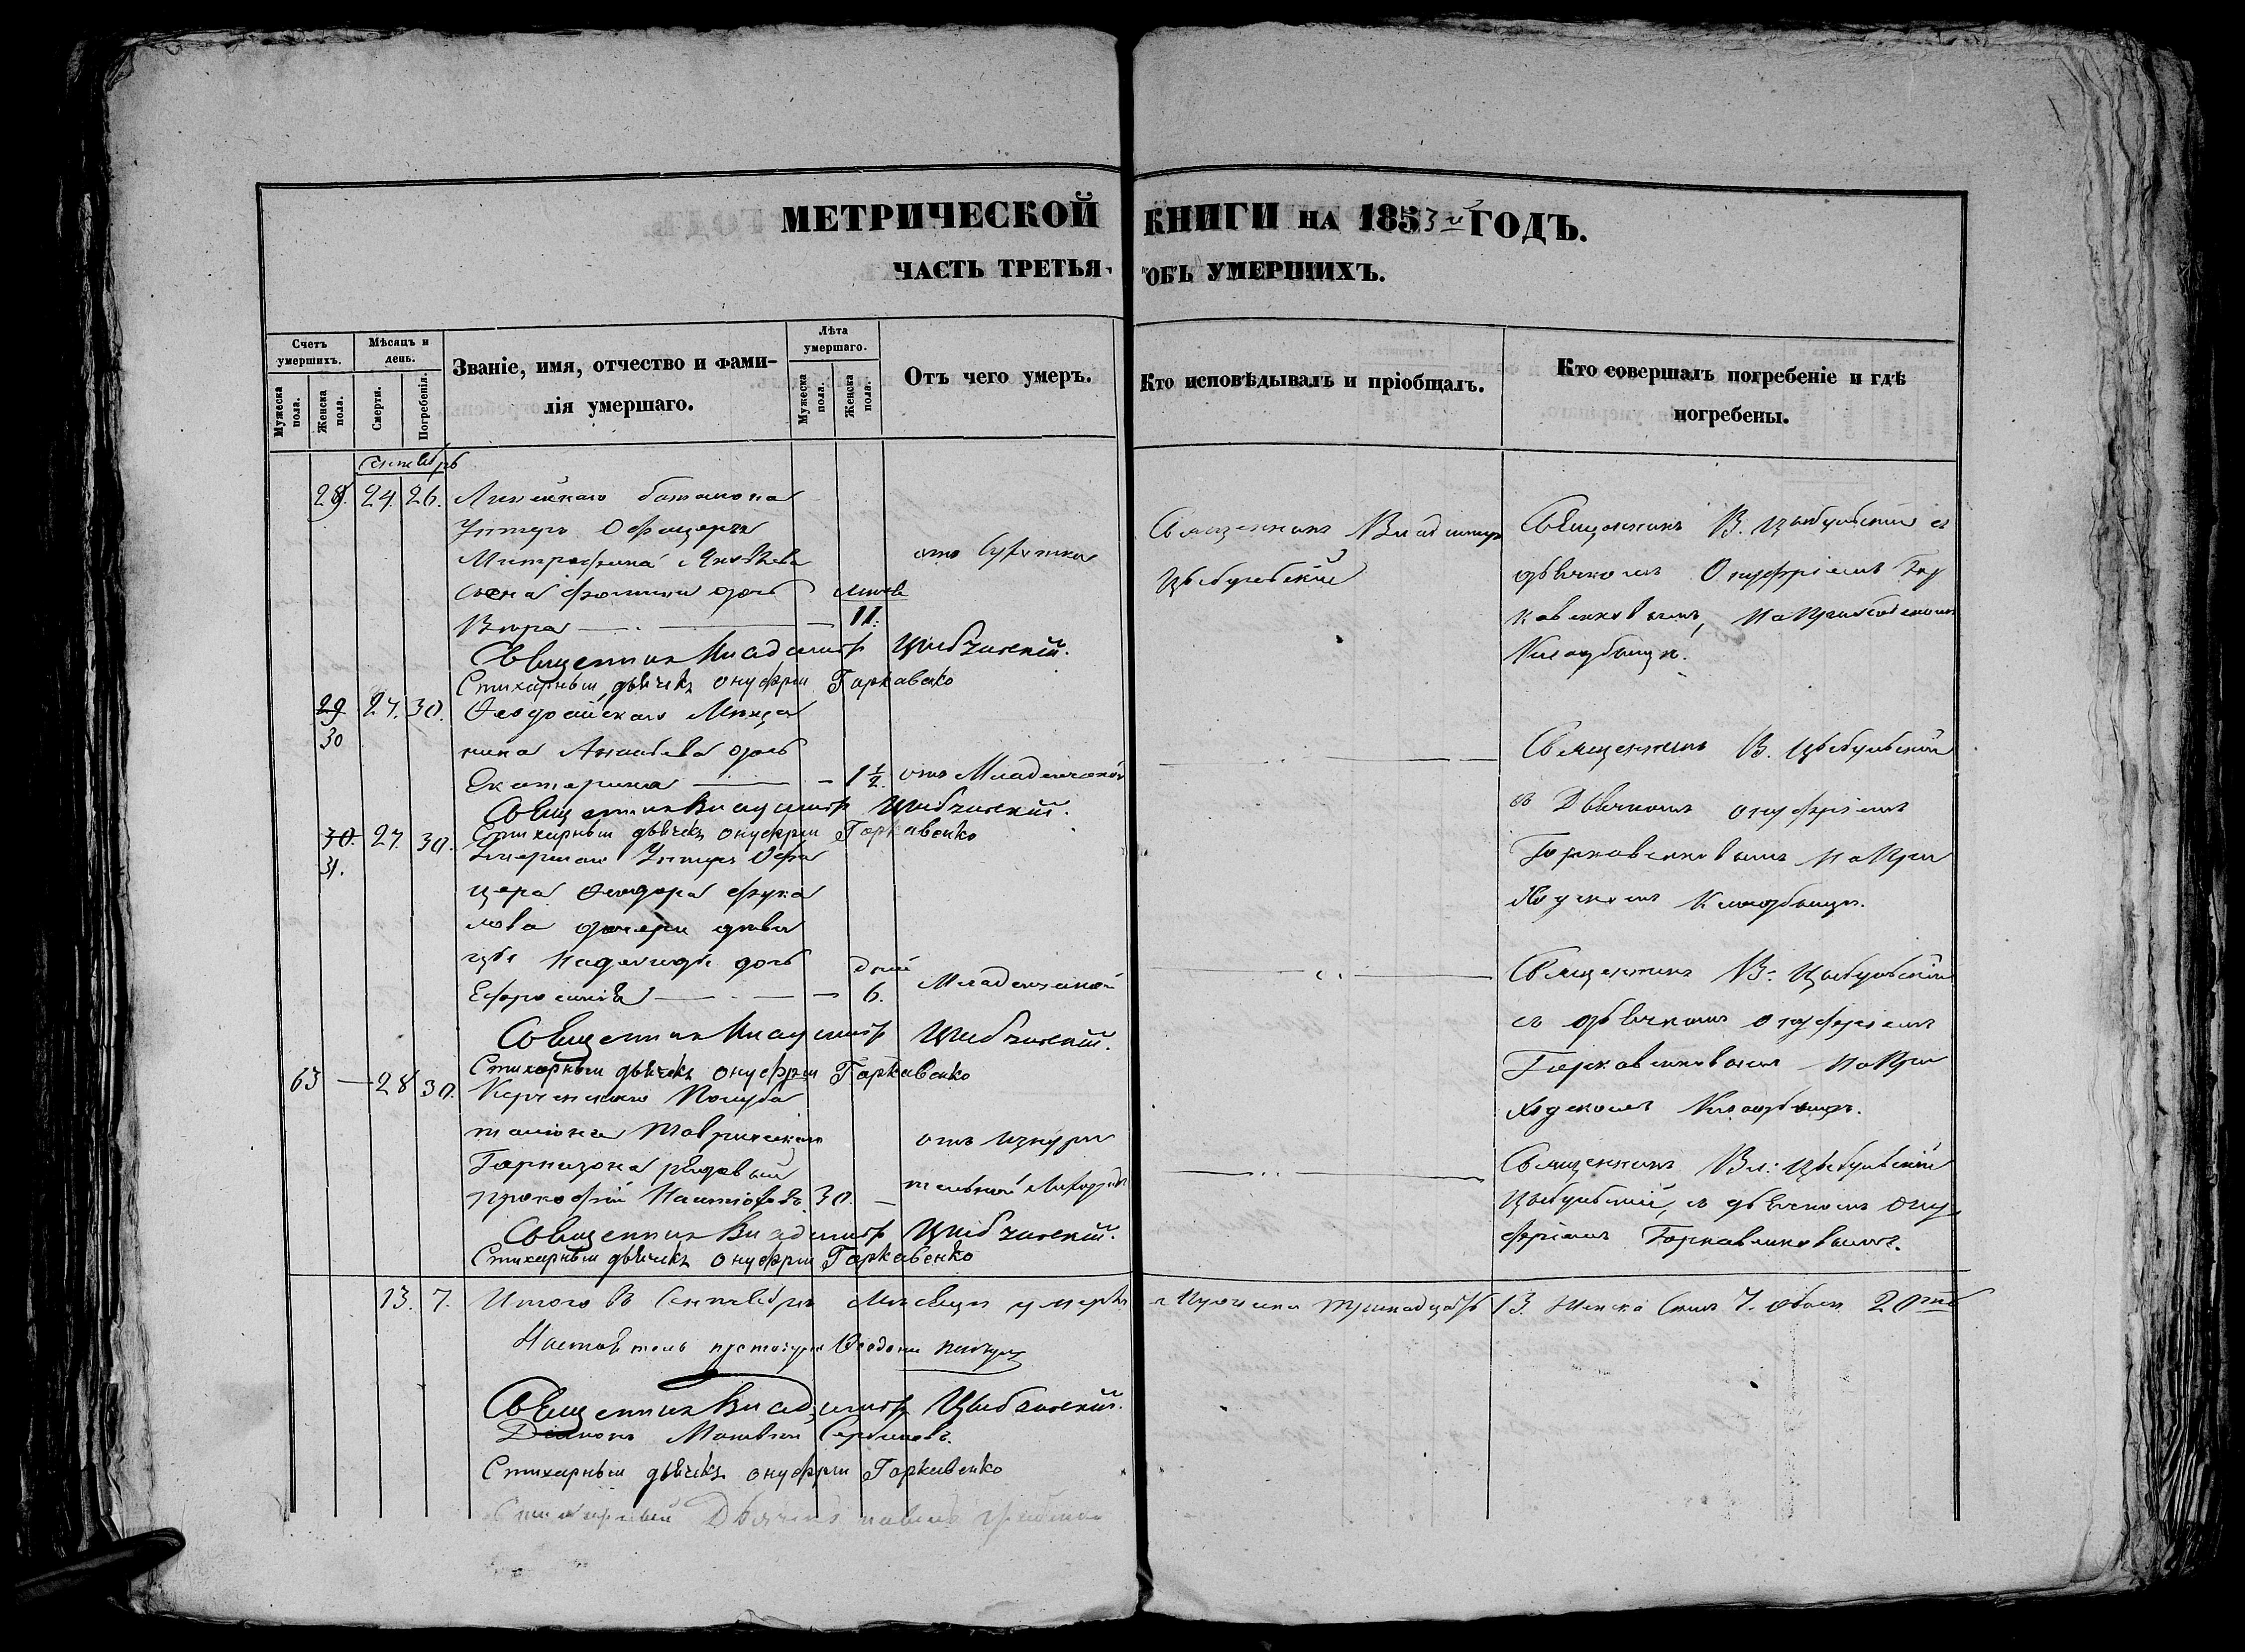 МЕТРИЧЕСКОЙ КНИГИ НА 1853й ГОДЪ.
ЧАСТЬ ТРЕТЬЯ, ОБЪ УМЕРШИХЪ.
Счетъ умершихъ.
Мужеска пола.
Женска пола.
Мѣсяцъ и день.
Смерти.
Погребенія.
Званіе, имя, отчество и фами-
лія умершаго.
Лѣта умершаго.
Мужеска пола.
Женска пола.
Отъ чего умеръ.
Кто исповѣдывалъ и пріобщалъ.
Кто совершалъ погребеніе и гдѣ
погребены.
Сентябрь
29. 24. 26. Линейнаго баталіона
Унтеръ Офицера
Митрофана Яковлева
сына дочь
Вѣра 11.
отъ
Священникъ Владимиръ
Цыбульскій
Священникъ В. Цыбульскій съ
дьячкомъ Онуфріемъ Гор
кавенковымъ, на Приходскомъ
Кладбищѣ.
Священникъ Владимиръ Цыбульскій.
Стихарный дьячекъ Онуфрій Горкавенко
29 27. 30. Ѳеодосійскаго Мѣща
30
нина дочь
Екатерина 1½ отъ Младенческой
Священникъ В. Цыбульскій
съ Дьячкомъ Онуфріемъ
Горкавенковымъ на При
ходскомъ Кладбищѣ.
Священникъ Владимиръ Цыбульскій.
Стихарный дьячекъ Онуфрій Горкавенко
30. 27. 30. Умершаго Унтеръ Офи
31.
цера Ѳеодора
дочери дѣви
цы Надежды дочь
Ефросинія
дней
6. Младенческой
Священникъ В. Цыбульскій
съ дьячкомъ Онуфріемъ
Горкавенковымъ на При
ходскомъ Кладбищѣ.
Священникъ Владимиръ Цыбульскій.
Стихарный дьячекъ Онуфрій Горкавенко
63 28 30. Керченскаго Полуба
таліона Таврическаго
Гарнизона рядовый
Прокофій 30.
отъ изнури
тельной Лихорадки
Священникъ Вл: Цыбульскій
Цыбульскій, съ дьячкомъ Ону
фріемъ Горкавенковымъ.
Священникъ Владимиръ Цыбульскій.
Стихарный дьячекъ Онуфрій Горкавенко
13. 7. Итого въ Сентябрѣ Мѣсяцѣ умерло Мужеска тринадцать 13. Женска 7. обоего 20
Священникъ Владимиръ Цыбульскій.
Діаконъ Матвѣй Сербиновъ.
Стихарный дьячекъ Онуфрій Горкавенко
Стихарный Дьячекъ